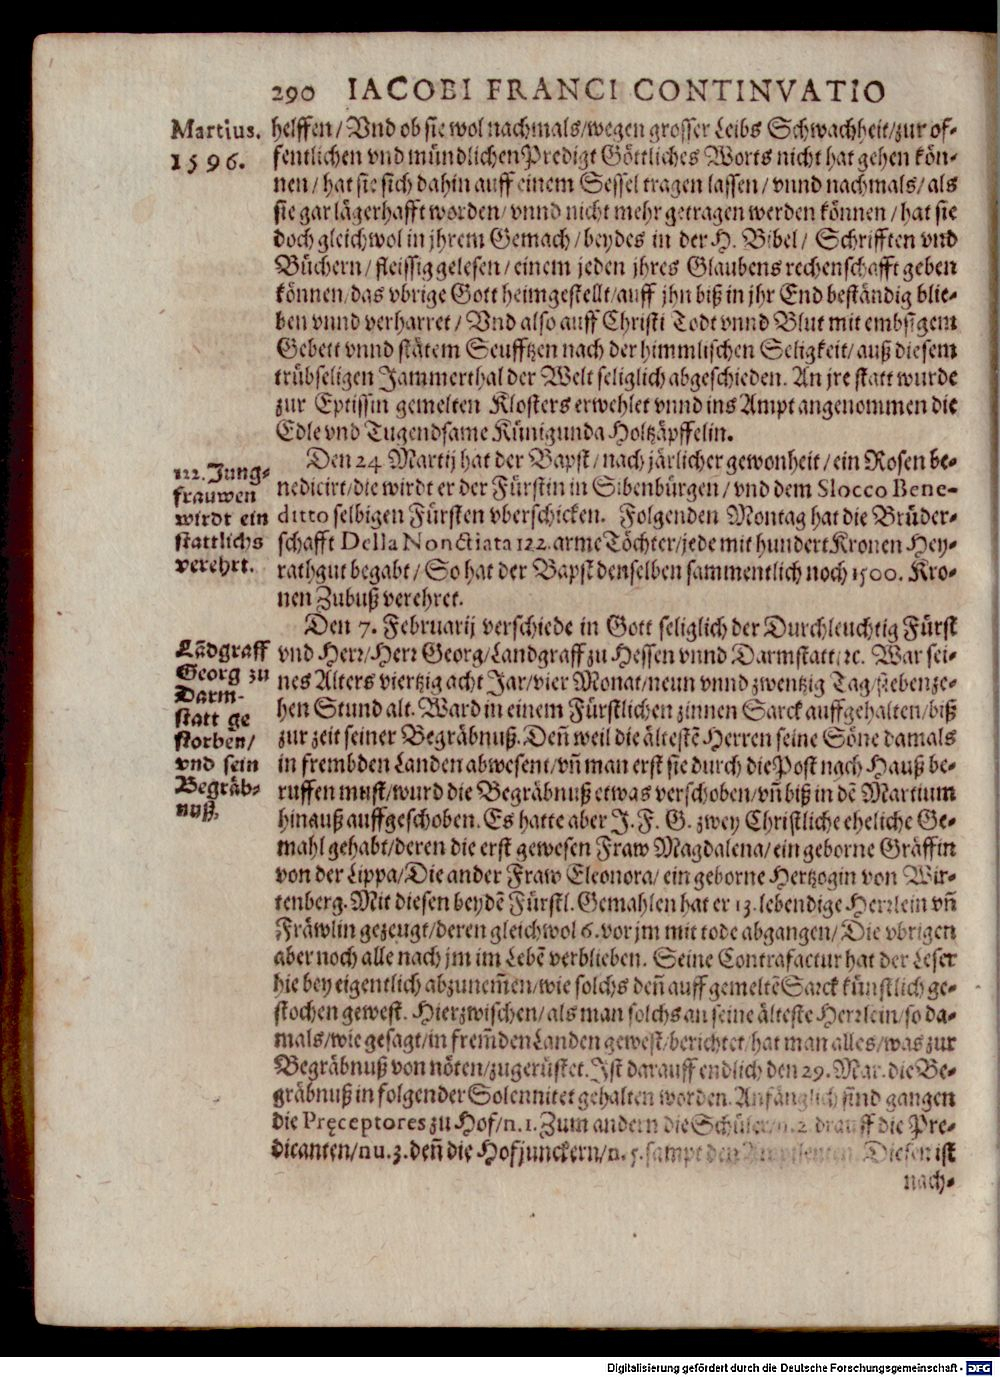 290 IACOBI FRANCI CONTINVATIO
Martius.
1596.
helffen/ Vnd ob sie wol nachmals/wegen grosser Leibs Schwachheit/zur of-
fentlichen vnd mündlichen Predigt Göttliches Worts nicht hat gehen kön-
nen/ hat sie sich dahin auff einem Sessel tragen lassen/ vnnd nachmals/ als
sie gar lägerhafft worden/ vnnd nicht mehr getragen werden können/ hat sie
doch gleichwol in jhrem Gemach/ beydes in der H. Bibel/ Schrifften vnd
Büchern/ fleissig gelesen/ einem jeden jhres Glaubens rechenschafft geben
können/das vbrige Gott heimgestellt/auff jhn biß in jhr End beständig blie-
ben vnnd verharret/ Vnd also auff Christi Todt vnnd Blut mit embsigem
Gebett vnnd stätem Seufftzen nach der himmlischen Seligkeit/ auß diesem
trübseligen Jammerthal der Welt seliglich abgeschieden. An jre statt wurde
zur Eptissin gemelten Klosters erwehlet vnnd ins Ampt angenommen die
Edle vnd Tugendsame Künigunda Holtzäpffelin.
122. Jung-
frauwen
wirdt ein
stattlichs
verehrt.
Den 24 Martij hat der Bapst/ nach järlicher gewonheit/ ein Rosen be-
nedicirt/die wirdt er der Fürstin in Sibenbürgen/ vnd dem Slocco Bene-
ditto selbigen Fürsten vberschicken. Folgenden Montag hat die Brüder-
schafft Della Nonctiata 122. arme Töchter/jede mit hundert Kronen Hey-
rathgut begabt/ So hat der Bapst denselben sammentlich noch 1500. Kro-
nen Zubuß verehret.
Lādgraff
Georg zu
Darm-
statt ge
storben/
vnd sein
Begräb-
nuß.
Den 7. Februarij verschiede in Gott seliglich der Durchleuchtig Fürst
vnd Herr/Herr Georg/Landgraff zu Hessen vnnd Darmstatt/ꝛc. War sei-
nes Alters viertzig acht Jar/vier Monat/neun vnnd zwentzig Tag/siebenze-
hen Stund alt. Ward in einem Fürstlichen zinnen Sarck auffgehalten/biß
zur zeit seiner Begräbnuß. Deñ weil die ältestē Herren seine Söne damals
in frembden Landen abwesent/vñ man erst sie durch die Post nach Hauß be-
ruffen must/wurd die Begräbnuß etwas verschoben/vñ biß in dē Martium
hinauß auffgeschoben. Es hatte aber J. F. G. zwey Christliche eheliche Ge-
mahl gehabt/deren die erst gewesen Fraw Magdalena/ein geborne Gräffin
von der Lippa/Die ander Fraw Eleonora/ein geborne Hertzogin von Wir-
tenberg. Mit diesen beydē Fürstl. Gemahlen hat er 13. lebendige Herrlein vñ
Fräwlin gezeugt/deren gleichwol 6. vor jm mit tode abgangen/ Die vbrigen
aber noch alle nach jm im Lebē verblieben. Seine Contrafactur hat der Leser
hie bey eigentlich abzunem̃en/wie solchs deñ auff gemeltē Sarck künstlich ge-
stochen gewest. Hierzwischen/als man solchs an seine älteste Herrlein/so da-
mals/wie gesagt/in frem̃den Landen gewest/berichtet/hat man alles/was zur
Begräbnuß von nöten/zugerüstet. Ist darauff endlich den 29. Mar. die Be-
gräbnuß in folgender Solennitet gehalten worden. Anfänglich sind gangen
die Pręceptores zu Hof/n. 1. Zum andern die Schüler/n. 2. drauff die Pre-
dicanten/nu. 3. deñ die Hofjunckern/n. 5. sampt den Diesen ist
nach-
Digitalisierung gefördert durch die Deutsche Forschungsgemeinschaft - DFG